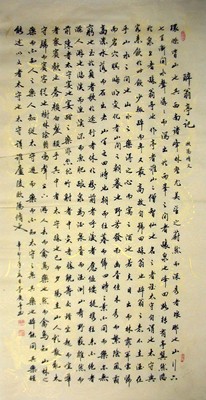 醉翁亭記 歐陽修文
環滁皆山也其西南諸峰林壑尤美望之蔚然而深秀者琅琊也山行六
七里漸聞水聲潺潺而瀉出於兩峰之間者釀泉也峰回路轉有亭翼然臨
於泉上者醉翁亭也作亭者誰山之僧智仙也名之者誰太守自謂也太守與
客來飲於此飲少輒醉而年又最高故自號曰醉翁也醉翁之意不在酒在
乎山水之間也山水之樂得之心而寓之酒也若夫日出而林霏開雲歸而
岩穴暝晦明變化者山間之朝暮也野芳發而幽香佳木秀而繁陰風霜
高潔水落而石出者山間之四時也朝而往暮而歸四時之景不同而樂亦無
窮也至於負者歌於途行者休於樹前者呼後者應傴僂提攜往來不絕者
滁人遊也臨溪而漁溪深而魚肥釀泉為酒泉香而酒洌山肴野蔌雜然而
前陳者太守宴也宴酣之樂非絲非竹射者中弈者勝觥籌交錯起坐而喧嘩
者眾賓歡也蒼顏白髮頹然乎其間者太守醉也已而夕陽在山人影散亂太
守歸而賓客從也樹林陰翳鳴聲上下遊人去而禽鳥樂也然而禽鳥知山林之
樂而不知人之樂人知從太守遊而樂而不知太守之樂其樂也醉能同其樂醒
能述以文者太守也太守謂誰廬陵歐陽修也